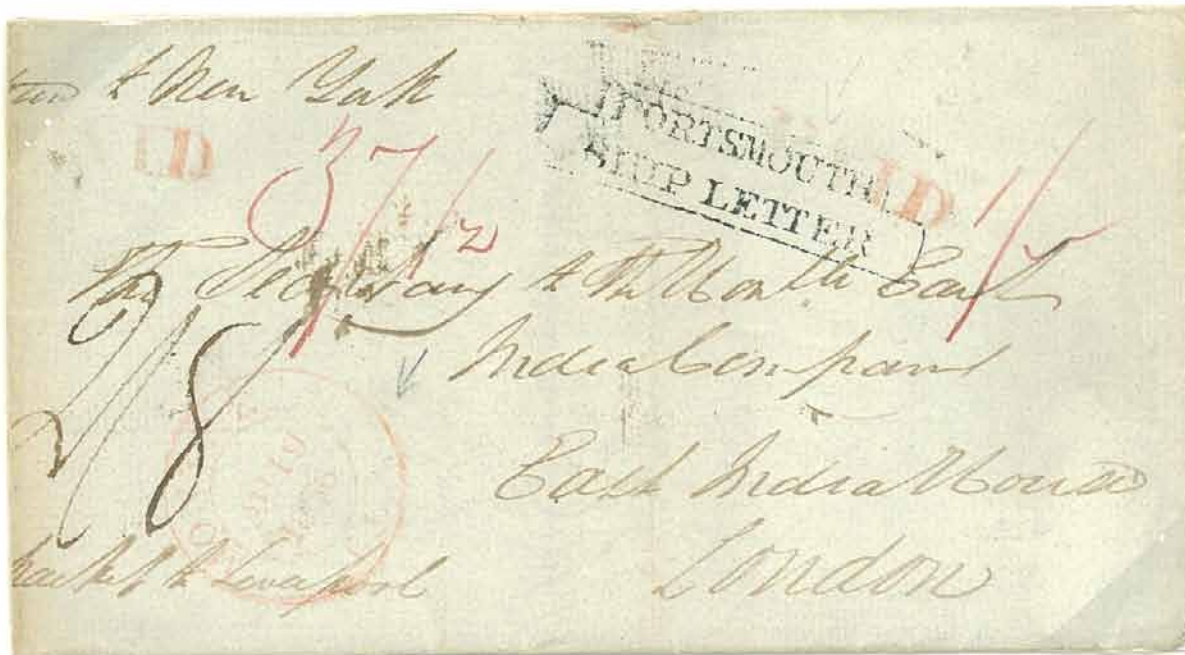 to New York
PAID
PORTSMOUTH
SHIP LETTER
PAID
37 1/2
1/5
The Secretary to the Honble East
India Company
2/8
East India House
London
Packet to Liverpool